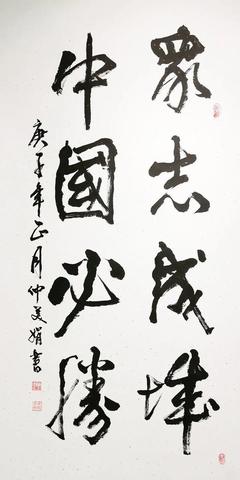 眾志成城
中國必勝
庚子年正月仲美娟書